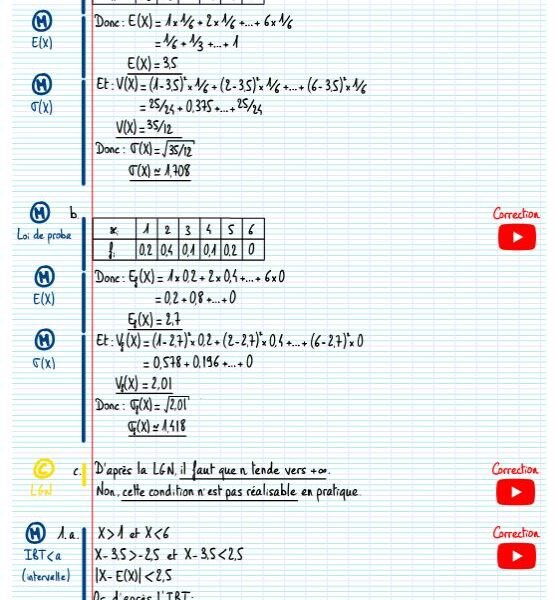 M Donc: E(X) = 1×1/6 + 2×1/6 +...+ 6×1/6
E(X) = 1/6 + 1/3 +...+ 1
E(X) = 3,5
M Et: V(X) = (1-3,5)²×1/6 + (2-3,5)²×1/6 +...+ (6-3,5)²×1/6
σ(X) = 25/24 + 0,375 +...+ 25/24
V(X) = 35/12
Donc: σ(X) = √35/12
σ(X) ≃ 1,708
M b. Correction
Loi de proba xᵢ 1 2 3 4 5 6
fᵢ 0,2 0,4 0,1 0,1 0,2 0
M Donc: Ef(X) = 1×0,2 + 2×0,4 +...+ 6×0
E(X) = 0,2 + 0,8 +...+ 0
Ef(X) = 2,7
M Et: Vf(X) = (1-2,7)²×0,2 + (2-2,7)²×0,4 +...+ (6-2,7)²×0
σ(X) = 0,578 + 0,196 +...+ 0
Vf(X) = 2,01
Donc: σf(X) = √2,01
σf(X) ≃ 1,418
C c. D'après la LGN, il faut que n tende vers +∞. Correction
LGN Non, cette condition n'est pas réalisable en pratique.
M 1.a. X>1 et X<6 Correction
IBT<a X-3,5>-2,5 et X-3,5<2,5
(intervalle) |X-E(X)|<2,5
Or d'après l'IBT: